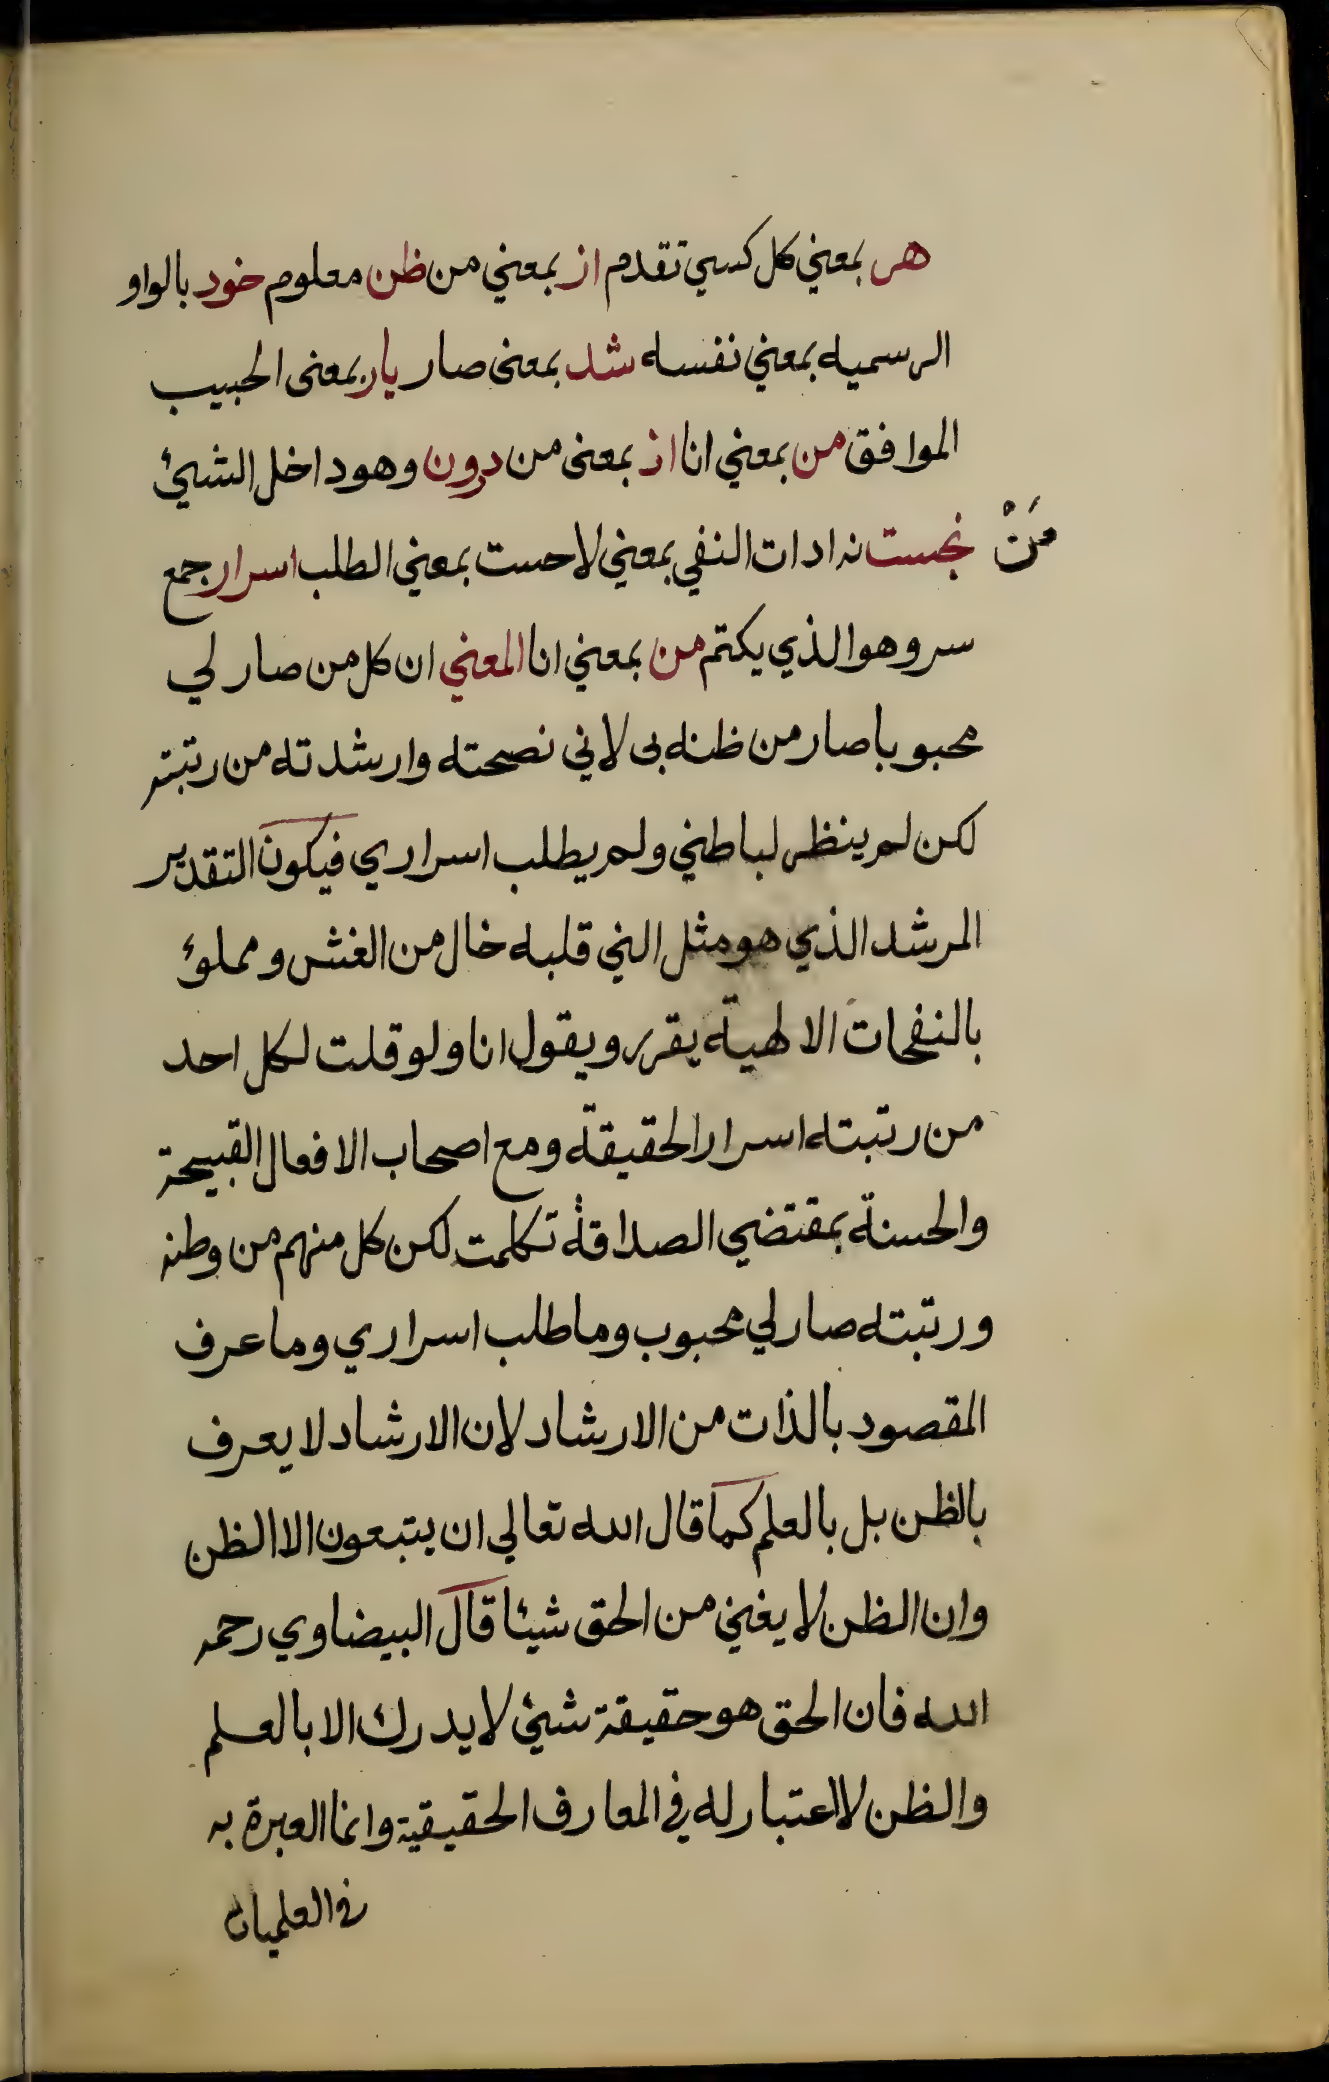 هر بمعني كل كسي تقدم از بمعني من ظن معلوم خود بالواو
الرسميه بمعني نفسه شد بمعنى صار يار بمعنى الحبيب
الموافق من بمعني انا از بمعنى من درون وهو داخل الشيئ
مَنْ نجست نه ادات النفي بمعني لا حست بمعني الطلب اسرار جمع
سر وهو الذي يكتم من بمعني انا المعني ان كل من صار لي
محبوبا صار من ظنه بى لاني نصحته وارشدته من رتبته
لكن لم ينظر لباطني ولم يطلب اسراري فيكون التقدير
المرشد الذي هو مثل الني قلبه خال من الغش ومملوئ
بالنفحات الالهية يقرر ويقول انا ولو قلت لكل احد
من رتبته اسرار الحقيقة ومع اصحاب الافعال القبيحة
والحسنة بمقتضي الصداقة تكلمت لكن كل منهم من وطنه
ورتبته صار لي محبوب وما طلب اسراري وما عرف
المقصود بالذات من الارشاد لان الارشاد لا يعرف
بالظن بل بالعلم كما قال الله تعالي ان يتبعون الا الظن
وان الظن لا يغني من الحق شيئا قال البيضاوي رحمه
الله فان الحق هو حقيقة شيئ لا يدرك الا بالعلم
والظن لا اعتبار له في المعارف الحقيقية وانما العبرة به
في العلميات